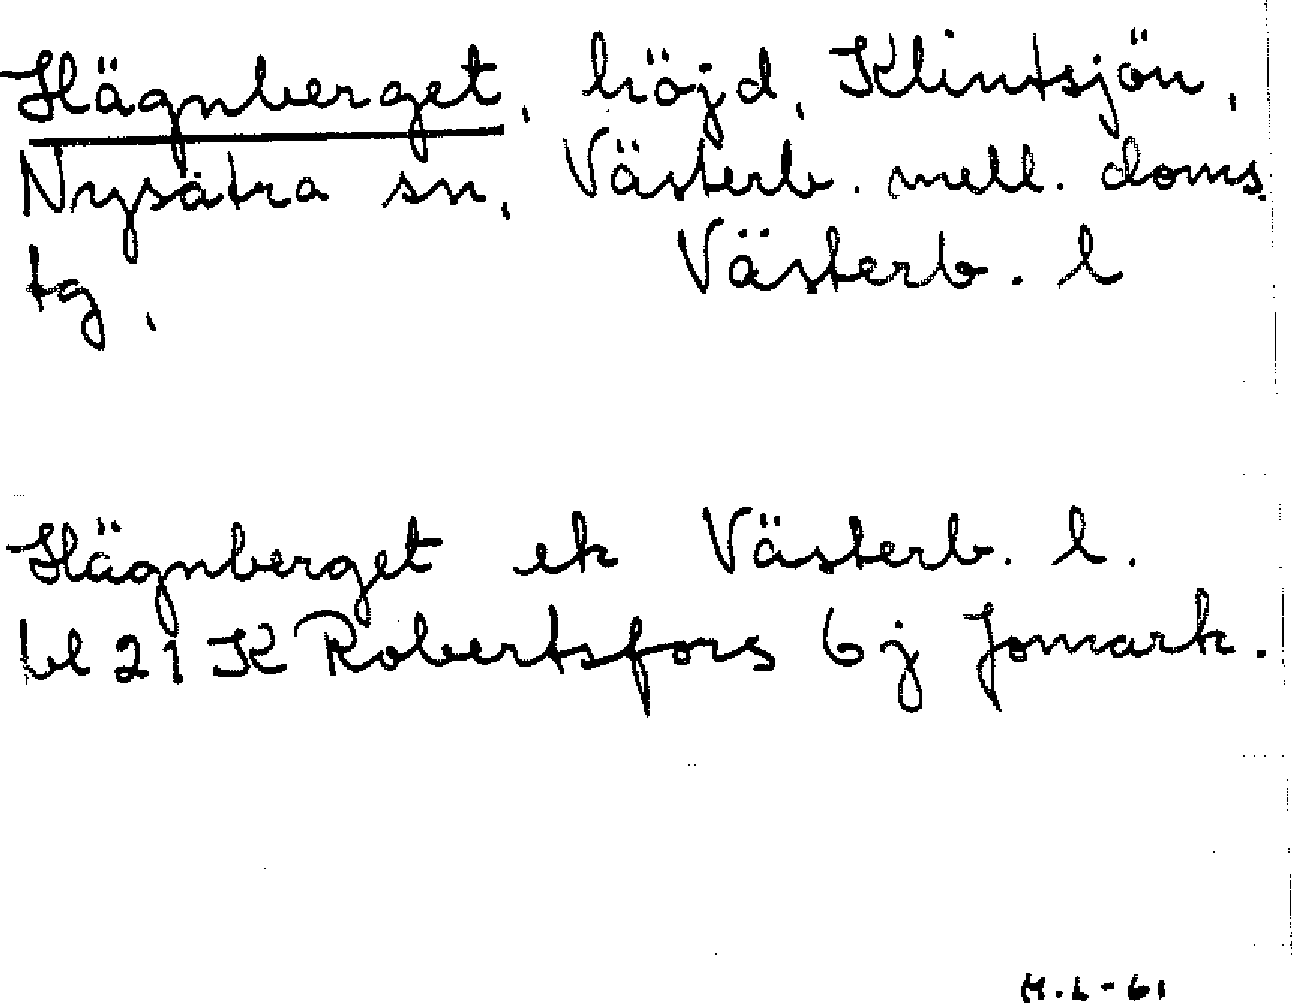 Hägnberget, höjd, Klintsjön,
Nysätra sn, Västerb. mell. doms.
tg, Västerb. l
Hägnberget ek Västerb. l.
bl 21 K Robertsfors 6 j Jomark.
H.L-61